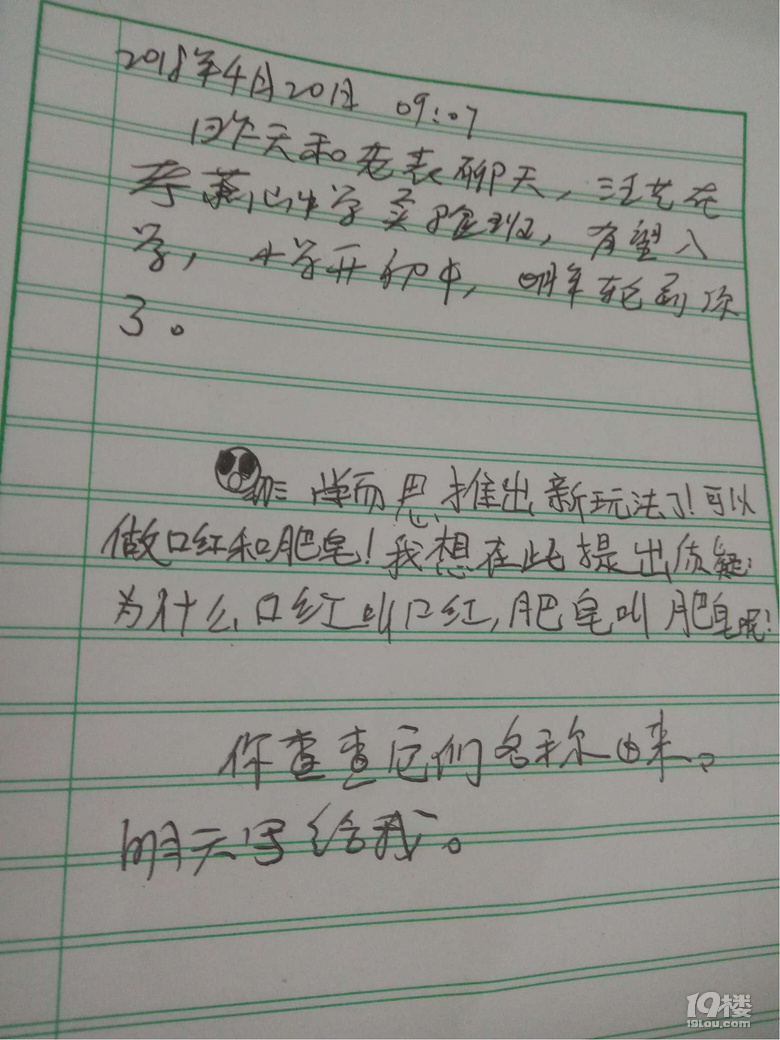 2018年4月20日 09:07
昨天和老表聊天,汪艺在
考萧山中学实验班,有望入
学,小学开初中,明年轮到你
了。
学而思推出新玩法了!可以
做口红和肥皂!我想在此提出质疑:
为什么口红叫口红,肥皂叫肥皂呢?
你查查它们名称由来,
明天写给我。
19楼
19lou.com